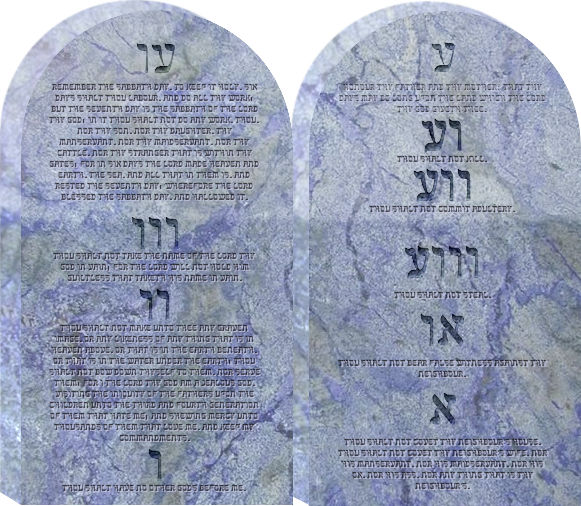 וע
REMEMBER THE SABBATH DAY, TO KEEP IT HOLY. SIX
DAYS SHALT THOU LABOUR, AND DO ALL THY WORK:
BUT THE SEVENTH DAY IS THE SABBATH OF THE LORD
THY GOD: IN IT THOU SHALT NOT DO ANY WORK, THOU,
NOR THY SON, NOR THY DAUGHTER, THY
MANSERVANT, NOR THY MAIDSERVANT, NOR THY
CATTLE, NOR THY STRANGER THAT IS WITHIN THY
GATES: FOR IN SIX DAYS THE LORD MADE HEAVEN AND
EARTH, THE SEA, AND ALL THAT IN THEM IS, AND
RESTED THE SEVENTH DAY: WHEREFORE THE LORD
BLESSED THE SABBATH DAY, AND HALLOWED IT.
ווו
THOU SHALT NOT TAKE THE NAME OF THE LORD THY
GOD IN VAIN; FOR THE LORD WILL NOT HOLD HIM
GUILTLESS THAT TAKETH HIS NAME IN VAIN.
וו
THOU SHALT NOT MAKE UNTO THEE ANY GRAVEN
IMAGE, OR ANY LIKENESS OF ANY THING THAT IS IN
HEAVEN ABOVE, OR THAT IS IN THE EARTH BENEATH,
OR THAT IS IN THE WATER UNDER THE EARTH: THOU
SHALT NOT BOW DOWN THYSELF TO THEM, NOR SERVE
THEM: FOR I THE LORD THY GOD AM A JEALOUS GOD,
VISITING THE INIQUITY OF THE FATHERS UPON THE
CHILDREN UNTO THE THIRD AND FOURTH GENERATION
OF THEM THAT HATE ME; AND SHEWING MERCY UNTO
THOUSANDS OF THEM THAT LOVE ME, AND KEEP MY
COMMANDMENTS.
ו
THOU SHALT HAVE NO OTHER GODS BEFORE ME.
ע
HONOUR THY FATHER AND THY MOTHER: THAT THY
DAYS MAY BE LONG UPON THE LAND WHICH THE LORD
THY GOD GIVETH THEE.
עו
THOU SHALT NOT KILL.
עוו
THOU SHALT NOT COMMIT ADULTERY.
עווו
THOU SHALT NOT STEAL.
וא
THOU SHALT NOT BEAR FALSE WITNESS AGAINST THY
NEIGHBOUR.
א
THOU SHALT NOT COVET THY NEIGHBOUR'S HOUSE,
THOU SHALT NOT COVET THY NEIGHBOUR'S WIFE, NOR
HIS MANSERVANT, NOR HIS MAIDSERVANT, NOR HIS
OX, NOR HIS ASS, NOR ANY THING THAT IS THY
NEIGHBOUR'S.